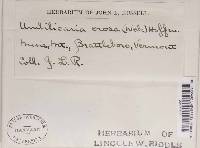 HERBARIUM OF JOHN L. RUSSELL
Umbilicaria erosa (Web.) Hoffm.
Mts., Brattleboro, Vermont
Coll. J. L. R.
HERBARIUM OF
LINCOLN W. RIDDLE